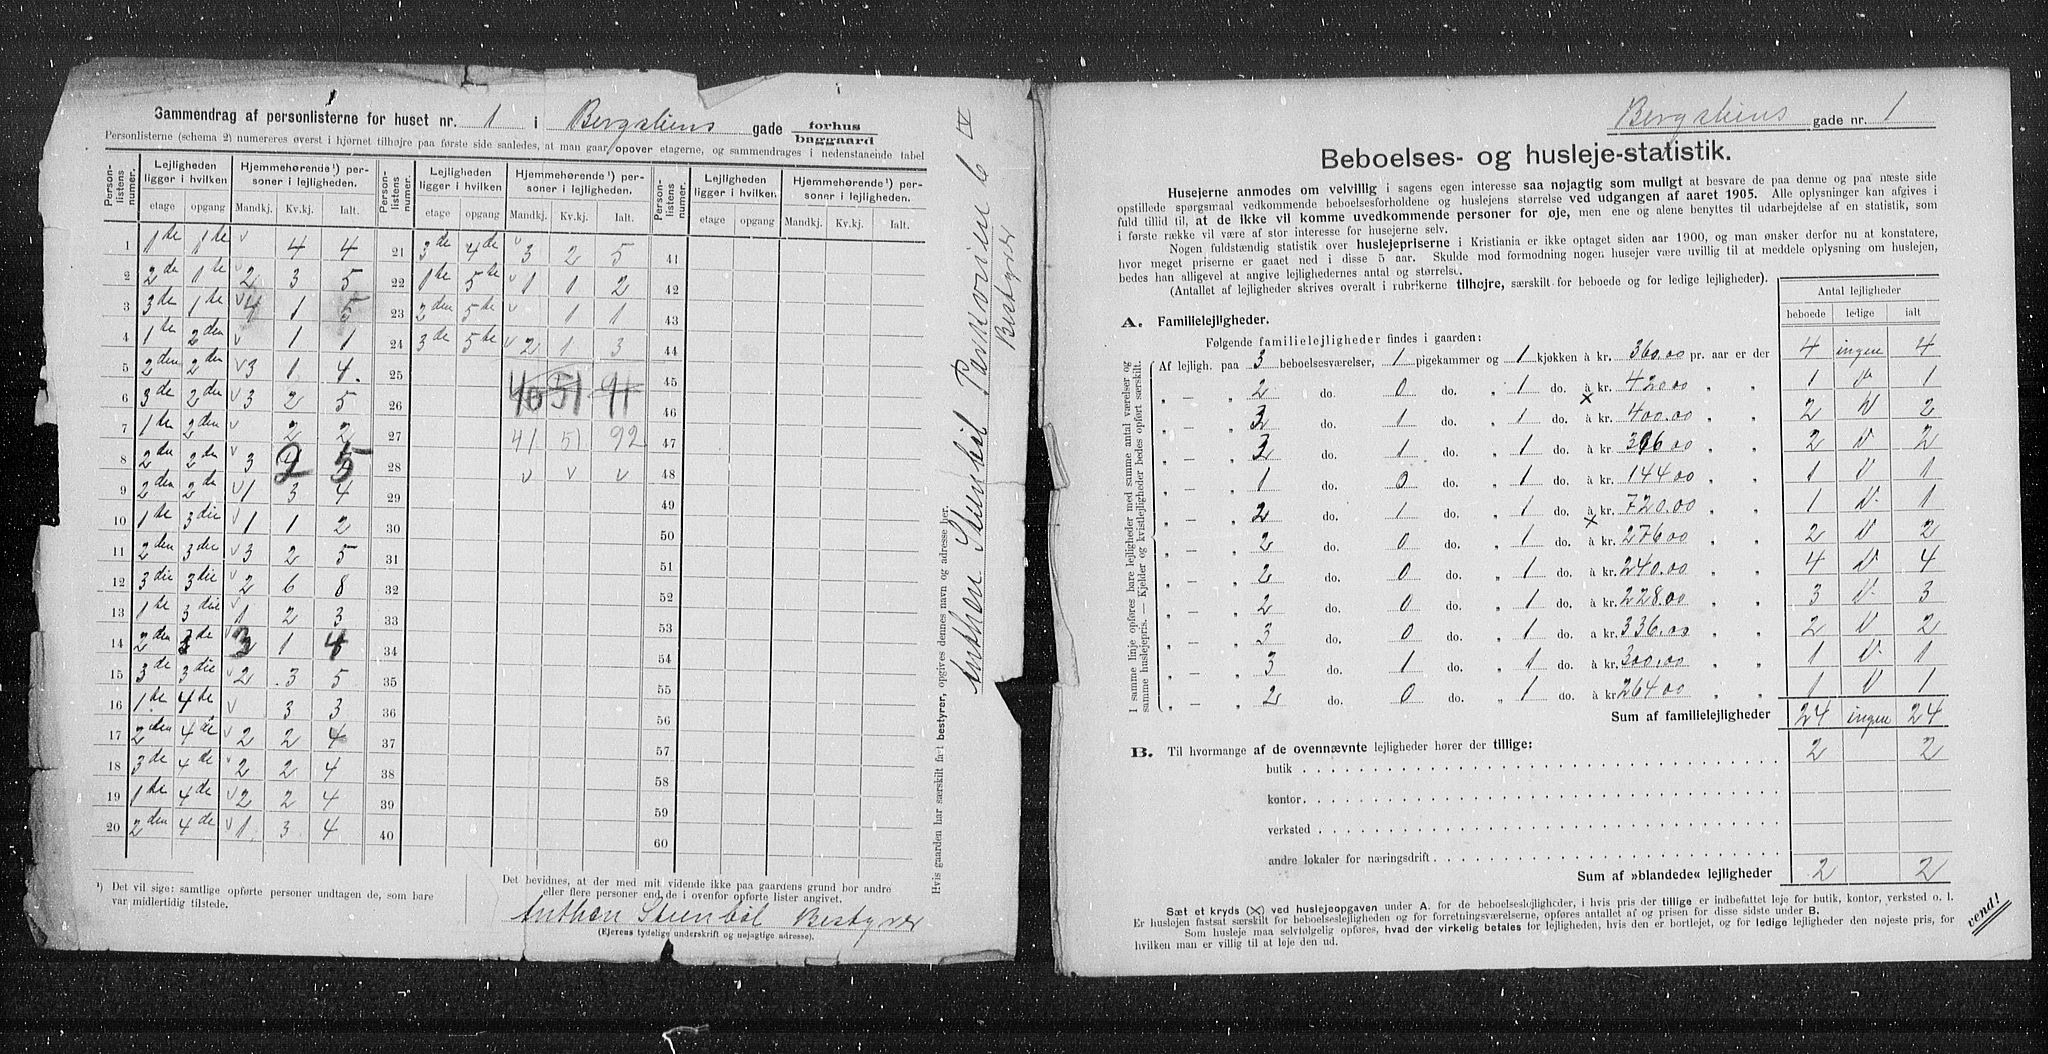 Sammendrag af personlisterne for huset nr. 1 i Bergsliens gade forhus baggaard
Personlisterne (schema 2) numereres øverst i hjørnet tilhøjre paa første side saaledes, at man gaar opover etagerne, og sammendrages i nedenstaaende tabel
Person-listens numer. Lejligheden ligger i hvilken Hjemmehørende¹) personer i lejligheden. Person-listens numer. Lejligheden ligger i hvilken Hjemmehørende¹) personer i lejligheden. Person-listens numer. Lejligheden ligger i hvilken Hjemmehørende¹) personer i lejligheden.
etage opgang Mandkj. Kv.kj. Ialt. etage opgang Mandkj. Kv.kj. Ialt. etage opgang Mandkj. Kv.kj. Ialt.
1 1ste 1ste v 4 4 21 3de 4de v 3 2 5 41
2 2den 1ste v 2 3 5 22 1ste 5te v 1 1 2 42
3 3de 1ste v 4 1 5 23 2den 5te v 1 1 43
4 1ste 2den v 1 1 24 3de 5te v 2 1 3 44
5 2den 2den v 3 1 4. 25 40 51 91 45
6 3de 2den v 3 2 5 26 46
7 1ste 2den v 2 2 27 41 51 92 47
8 2de 2den v 3 2 5 28 v v v 48
9 2den 2de v 1 3 4 29 49
10 1ste 3die v 1 1 2 30 50
11 2den 3die v 3 2 5 31 51
12 3die 3die v 2 6 8 32 52
13 1ste 3die v 1 2 3 33 53
14 2den 3de v 3 1 4 34 54
15 3de 3die v 2 3 5 35 55
16 1ste 4de v 3 3 36 56
17 2den 4de v 2 2 4 37 57
18 3de 4de v 2 2 4 38 58
19 1ste 4de v 2 2 4 39 59
20 2den 4de v 1 3 4 40 60
¹) Det vil sige: samtlige opførte personer undtagen de, som bare var midlertidig tilstede.
Det bevidnes, at der med mit vidende ikke paa gaardens grund bor andre
eller flere personer end de i ovenfor opførte lister angivet.
Anthon Steenbøl Bestyrer
(Ejerens tydelige underskrift og nøjagtige adresse).
Hvis gaarden har særskilt fast bestyrer, opgives dennes navn og adresse her.
Anthon Steenbøl Parkveien 6 IV
Bestyrer
Bergsliens gade nr. 1
Beboelses- og husleje-statistik.
Husejerne anmodes om velvillig i sagens egen interesse saa nøjagtig som muligt at besvare de paa denne og paa næste side
opstillede spørgsmaal vedkommende beboelsesforholdene og huslejens størrelse ved udgangen af aaret 1905. Alle oplysninger kan afgives i
fuld tillid til, at de ikke vil komme uvedkommende personer for øje, men ene og alene benyttes til udarbejdelse af en statistik, som
i første række vil være af stor interesse for husejerne selv.
Nogen fuldstændig statistik over huslejepriserne i Kristiania er ikke optaget siden aar 1900, og man ønsker derfor nu at konstatere,
hvor meget priserne er gaaet ned i disse 5 aar. Skulde mod formodning nogen husejer være uvillig til at meddele oplysning om huslejen,
bedes han alligevel at angive lejlighedernes antal og størrelse.
(Antallet af lejligheder skrives overalt i rubrikerne tilhøjre, særskilt for beboede og for ledige lejligheder).
Antal lejligheder
beboede ledige ialt
A. Familielejligheder.
Følgende familielejligheder findes i gaarden:
I samme linje opføres bare lejligheder med samme antal værelser og samme huslejepris. — Kjelder og kvistlejligheder bedes opført særskilt.
Af lejligh. paa 3 beboelsesværelser, 1 pigekammer og 1 kjøkken à kr. 360.00 pr. aar er der 4 ingen 4
„ — „ 2 do. 0 do. „ 1 do. à kr. 420.00 „ „ 1 v 1
„ — „ 3 do. 1 do. „ 1 do. x à kr. 400.00 „ „ 2 v 2
„ — „ 3 do. 1 do. „ 1 do. à kr. 396.00 „ „ 2 v 2
„ — „ 1 do. 0 do. „ 1 do. à kr. 144.00 „ „ 1 v 1
„ — „ 2 do. 1 do. „ 1 do. à kr. 720.00 „ „ 1 v 1
„ — „ 2 do. 0 do. „ 1 do. x à kr. 276.00 „ „ 2 v 2
„ — „ 2 do. 0 do. „ 1 do. à kr. 240.00 „ „ 4 v 4
„ — „ 2 do. 0 do. „ 1 do. à kr. 228.00 „ „ 3 v 3
„ — „ 3 do. 0 do. „ 1 do. à kr. 336.00 „ „ 2 v 2
„ — „ 3 do. 1 do. „ 1 do. à kr. 300.00 „ „ 1 v 1
„ — „ 2 do. 0 do. „ 1 do. à kr. 264.00 „ „ 1 v 1
Sum af familielejligheder 24 ingen 24
B. Til hvormange af de ovennævnte lejligheder hører der tillige:
butik 2 2
kontor
verksted
andre lokaler for næringsdrift
Sum af »blandede« lejligheder 2 2
Sæt et kryds (X) ved huslejeopgaven under A. for de beboelseslejligheder, i hvis pris der tillige er indbefattet leje for butik, kontor, verksted o. l.
Er huslejen fastsat særskilt for beboelseslejligheden og for forretningsværelserne, opføres antallet af og prisen for disse sidste under B.
Som husleje maa selvfølgelig opføres, hvad der virkelig betales for lejligheden, hvis den er bortlejet, og for ledige lejligheder den nøjeste pris, for
hvilken man er villig til at leje den ud.
vend!